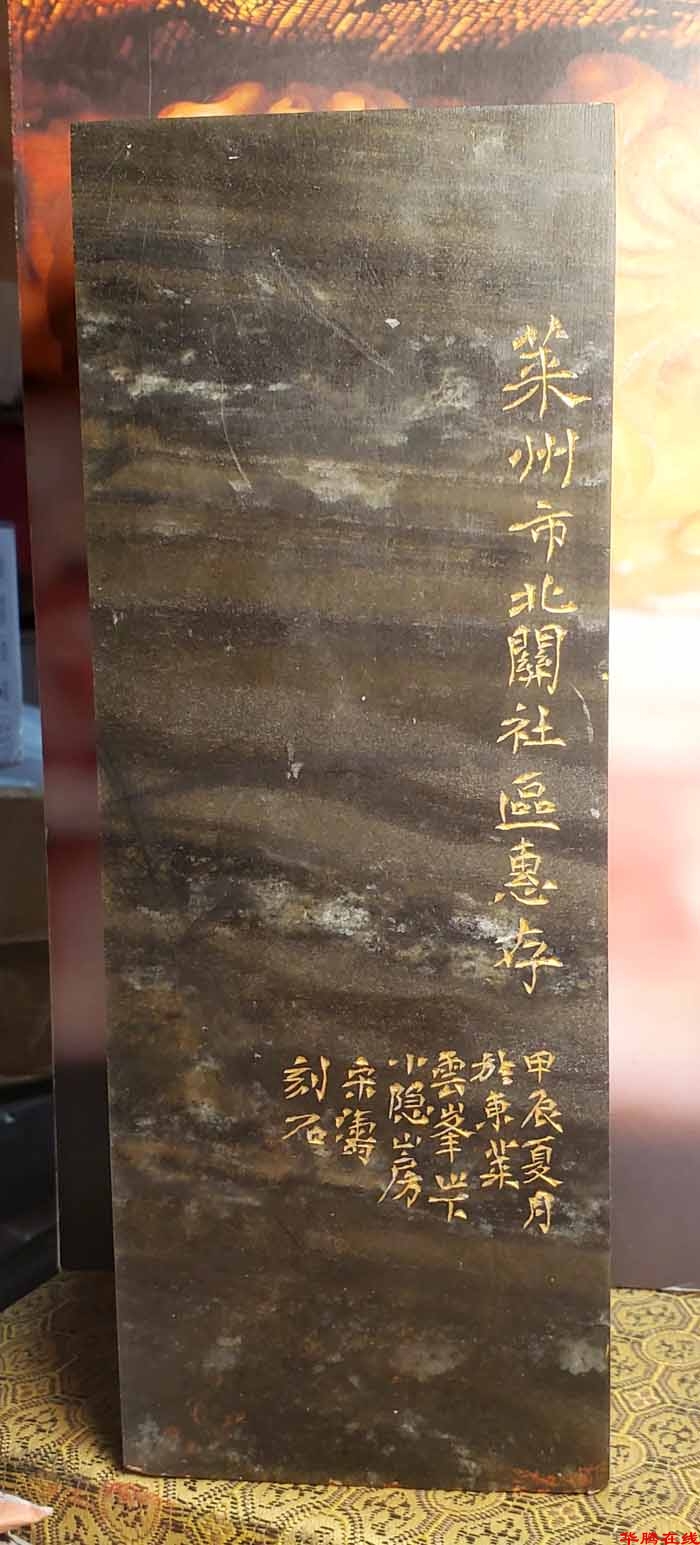 萊州市北關社區惠存
甲辰夏月
於東萊
雲峯山下
小隐山房
宋濤
刻石
华腾在线